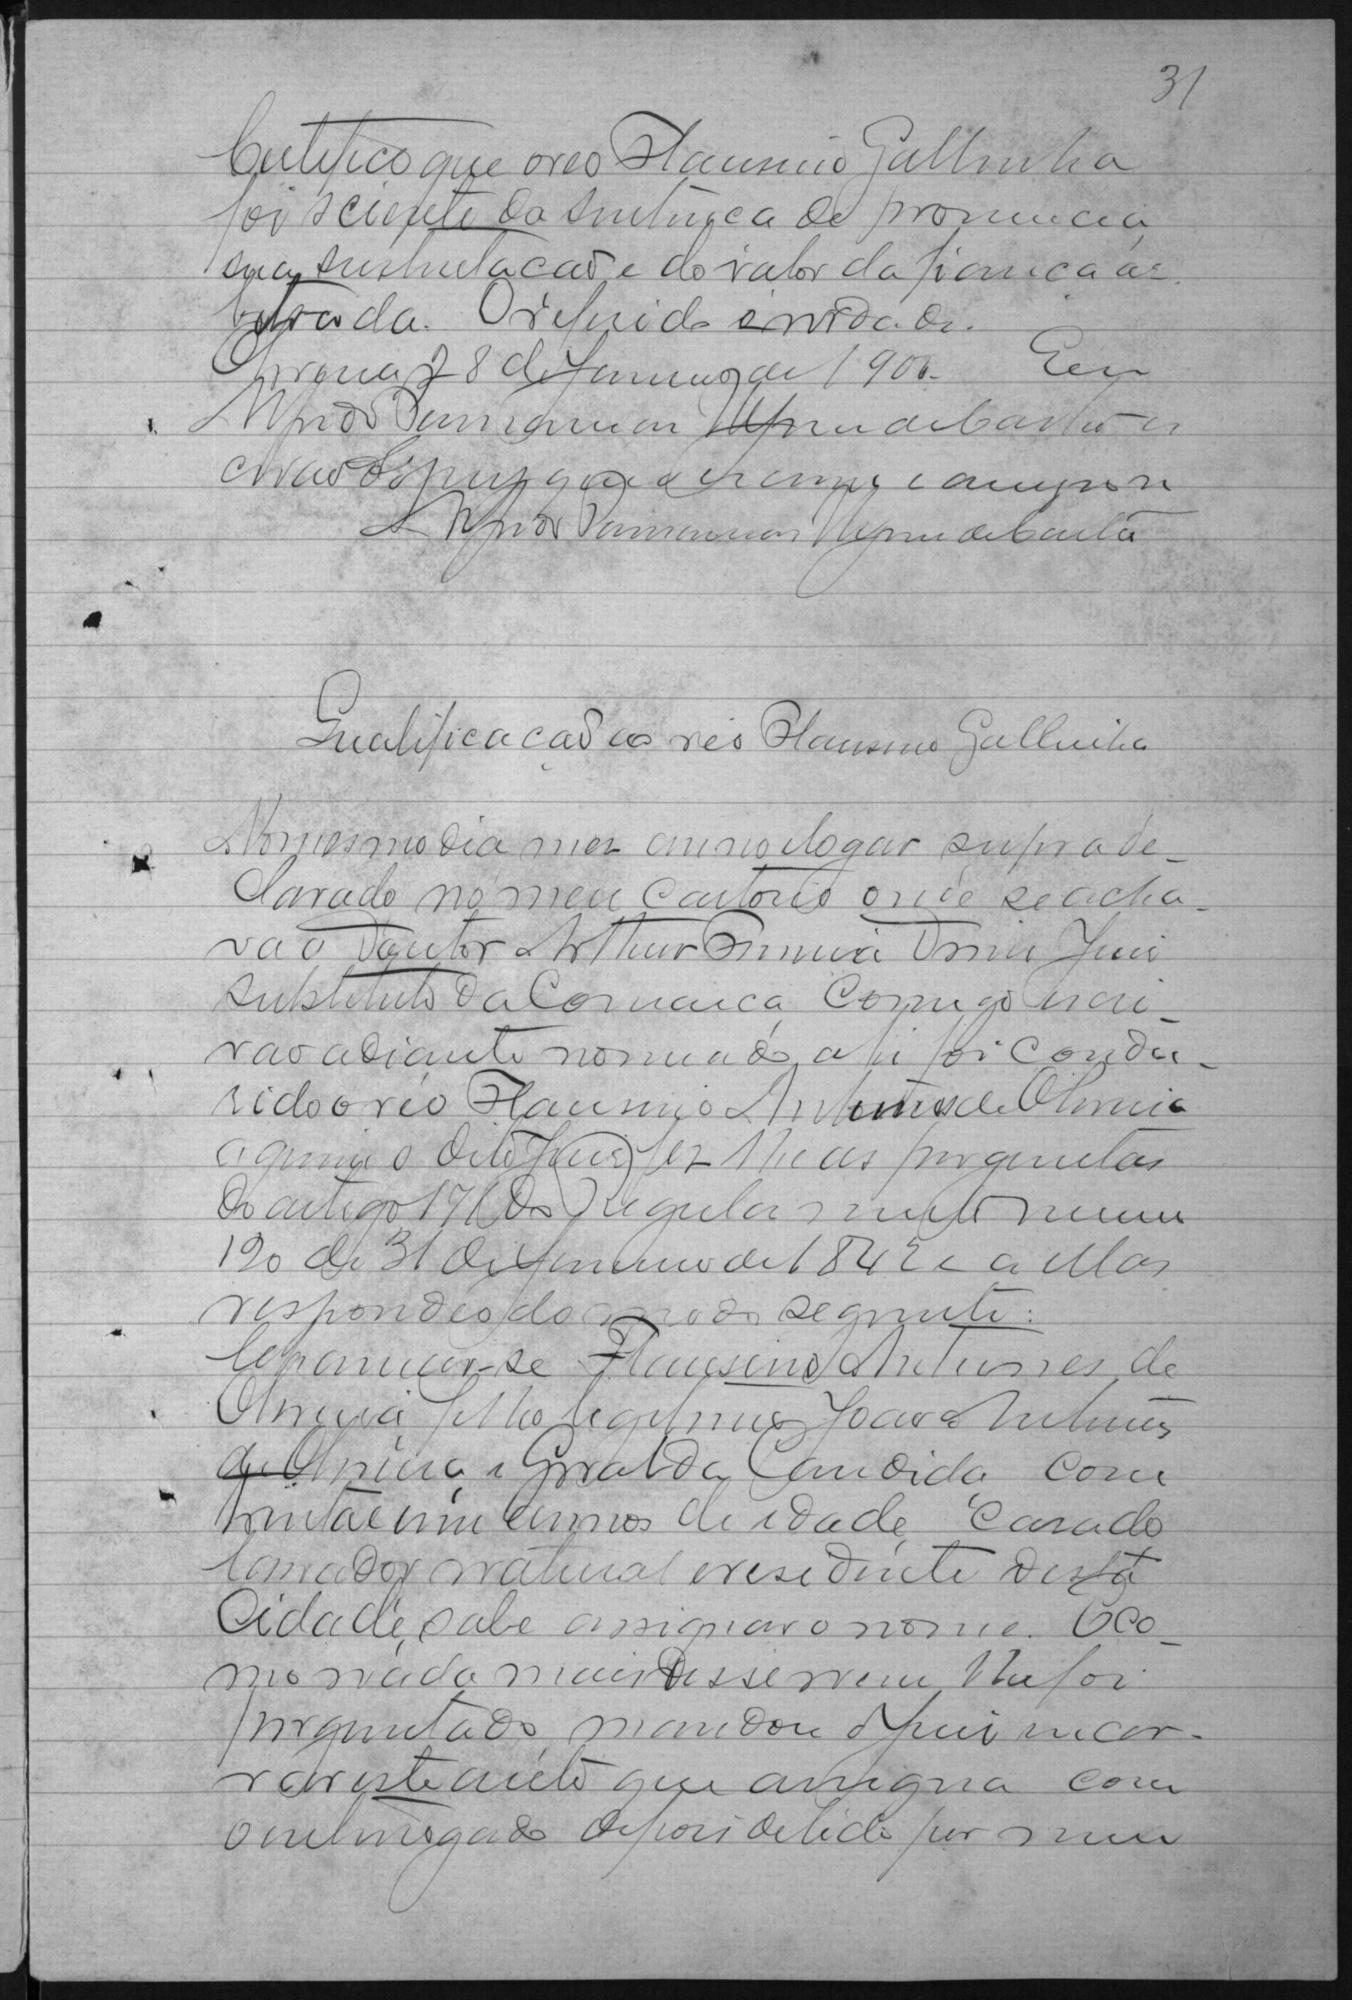 31
Certifico que o reo Flausino Gallinha
foi sciente da sentença de pronuncia
sua sustentacaõ e do valor da fiança ar
bitrada. O referido é verdade.
28 de Janeiro de 1900. Eu
de Castro es
crivaõ que escrevy e assignei
de Castro
Qualificaçaõ ao reo Flausino Gallinha
No mesmo dia mez anno e logar supra de-
clarado no meu cartorio onde se acha-
va o Doutor Arthur Juiz
substituto da Comarca, Comigo escri-
vaõ adiante nomeado, ahi foi condu-
sido o réo Flausino Antunes de Oliveira
a quem o dito Juiz fez lhe as perguntas
do artigo 171 do Regulamento numero
120 de 31 de Janeiro de 1842 e a ellas
respondeo do modo seguinte:
Chamar-se Flausino Antunes de
Oliveira, filho legitimo Joaõ Antunes
de Oliveira e Geralda Candida, com
trinta e um annos de idade, casado
lavrador, natural e residente desta
Cidade, sabe assignar o nome. E co-
mo nada mais disse nem lhe foi
perguntado, mandou o Juiz encer-
rar este auto que assigna com
o interrogado depois de lido por mim